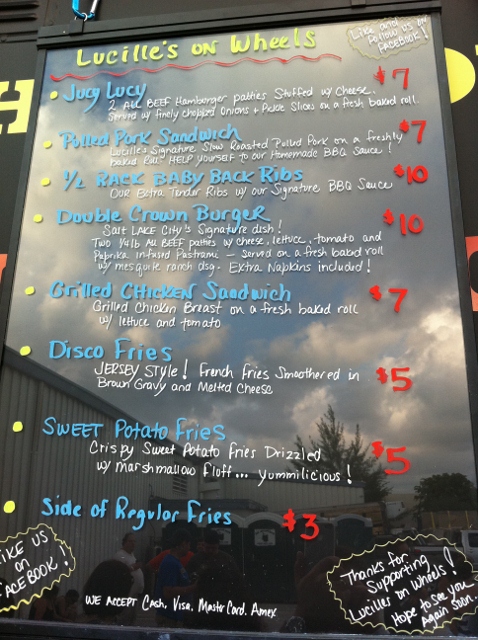 Lucille's on Wheels
Like and
Follow us on
FACEBOOK!
Jucy Lucy $7
2 ALL BEEF Hamburger patties Stuffed w/ Cheese.
Served w/ finely chopped Onions + Pickle Slices on a fresh baked roll.
Pulled Pork Sandwich $7
Lucille's Signature Slow Roasted Pulled Pork on a freshly
baked Bun. HELP YOURSELF to our Homemade BBQ Sauce!
1/2 RACK BABY BACK RIBS $10
OUR Extra Tender Ribs w/ our Signature BBQ Sauce
Double Crown Burger $10
Salt LAKE City's Signature dish!
Two 1/4 lb ALL BEEF patties w/ cheese, lettuce, tomato and
Paprika infused Pastrami - Served on a fresh baked roll
w/ mesquite ranch dsg - Extra Napkins included!
Grilled Chicken Sandwich $7
Grilled Chicken Breast on a fresh baked roll
w/ lettuce and tomato
Disco Fries $5
JERSEY STYLE! French Fries Smothered in
Brown Gravy and Melted Cheese
SWEET Potato Fries $5
Crispy Sweet Potato Fries Drizzled
w/ marshmallow fluff... yummilicious!
Side of Regular Fries $3
LIKE US
on
FACEBOOK!
WE ACCEPT Cash, Visa, MasterCard, Amex
Thanks for
Supporting
Lucilles on Wheels!
Hope to see you
Again Soon.